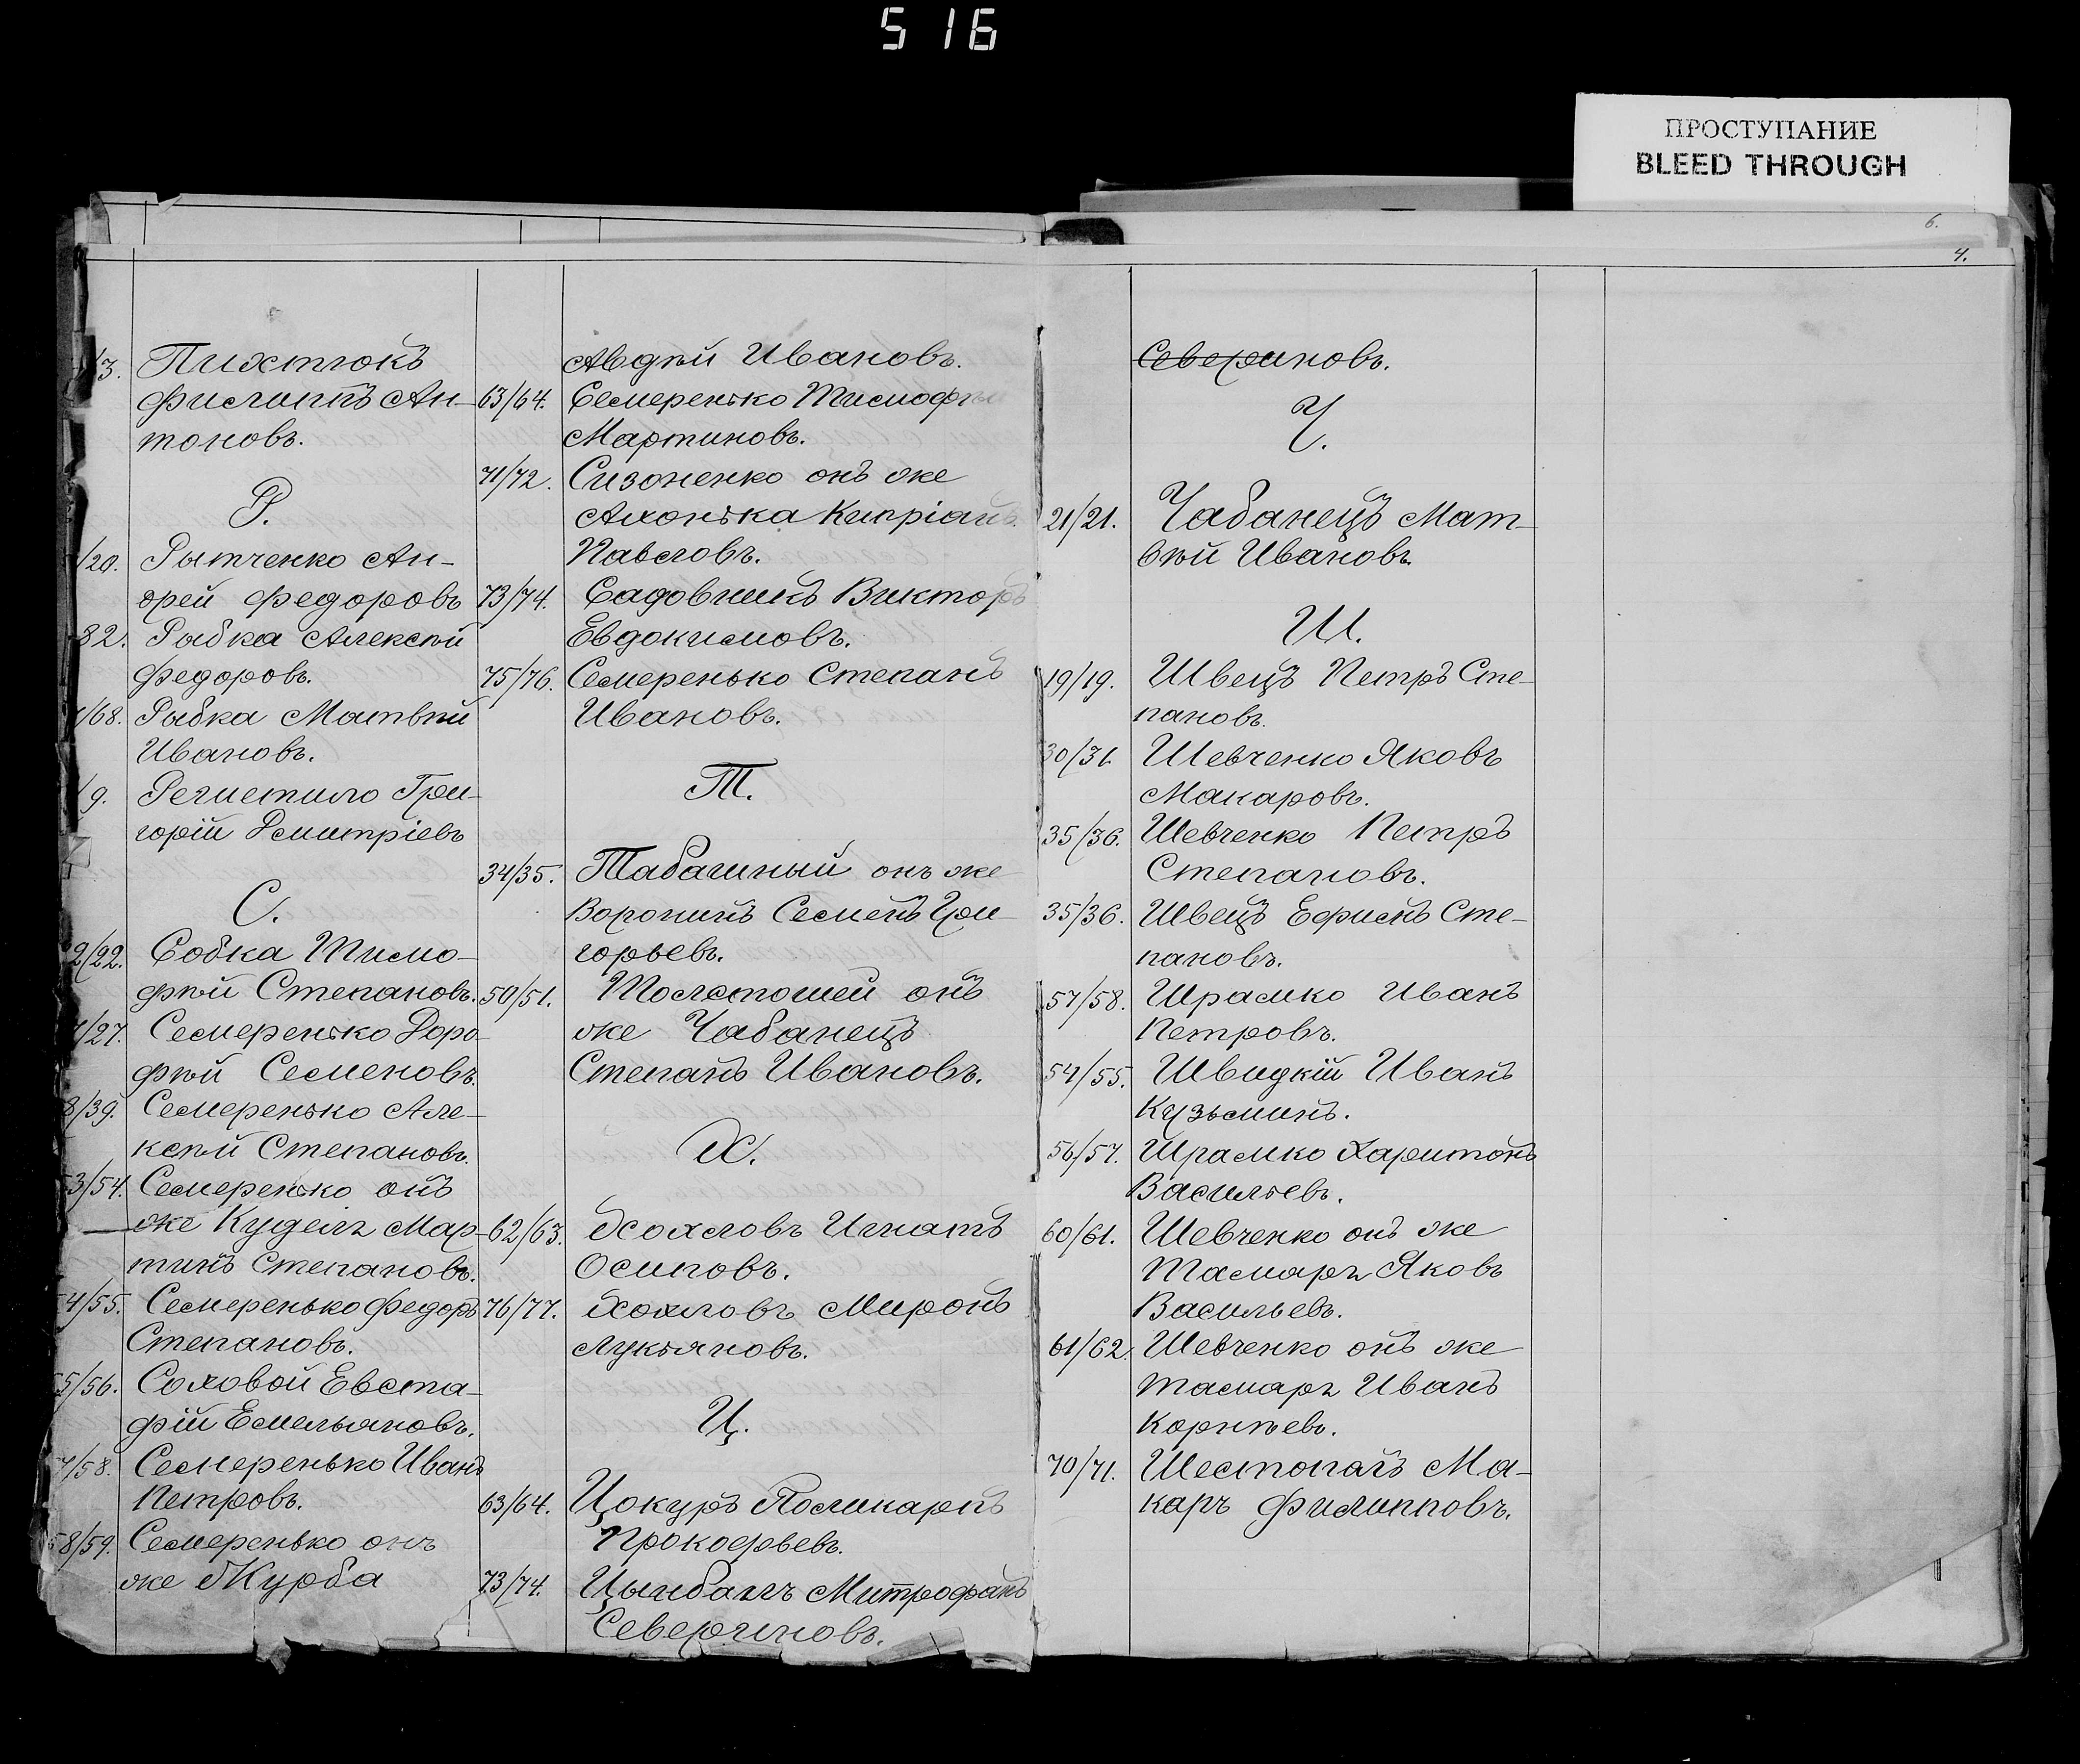 516
ПРОСТУПАНИЕ
BLEED THROUGH
6.
4.
/3. Пихтюкъ
Филиппъ Ан-
тоновъ.
Р.
/20. Рытченко Ан-
дрей Федоровъ
32. Рыбка Алексѣй
Федоровъ.
/68. Рыбка Матвѣй
Ивановъ.
/9. Регистило Гри-
горій Дмитріевъ
С.
2/22. Собка Тимо-
фѣй Степановъ.
/27. Семеренько Доро-
фѣй Семеновъ.
8/39. Семеренько Але-
ксѣй Степановъ.
53/54. Семеренько онъ
же Куделя Мар-
тинъ Степановъ.
54/55. Семеренько Федоръ
Степановъ.
55/56. Соловой Евста-
фій Емельяновъ.
57/58. Семеренько Иванъ
Петровъ.
58/59. Семеренько онъ
же Журба
Авдѣй Ивановъ.
63/64. Семеренько Тимофѣй
Мартиновъ.
71/72. Сизоненко онъ же
Кипріанъ
Павловъ.
73/74. Садовникъ Викторъ
Евдокимовъ.
75/76. Семеренько Степанъ
Ивановъ.
Т.
34/35. Табачный онъ же
Воронинъ Семенъ Гри-
горьевъ.
50/51. Толстошей онъ
же Чабанецъ
Степанъ Ивановъ.
Х.
62/63. Хохловъ Игнатъ
Осиповъ.
76/77. Хохловъ Миронъ
Лукьяновъ.
Ц.
63/64. Цокуръ Поликарпъ
Прокофьевъ.
73/74. Цынбалъ Митрофанъ
Севериновъ.
Севериновъ.
Ч.
21/21. Чабанецъ Мат-
вѣй Ивановъ.
Ш.
19/19. Швецъ Петръ Сте-
пановъ.
30/31. Шевченко Яковъ
Макаровъ.
35/36. Шевченко Петръ
Степановъ.
35/36. Швецъ Ефимъ Сте-
пановъ.
57/58. Шрамко Иванъ
Петровъ.
54/55. Швидкій Иванъ
Кузьминъ.
56/57. Шрамко Харитонъ
Васильевъ.
60/61. Шевченко онъ же
Тасмаръ Яковъ
Васильевъ.
61/62. Шевченко онъ же
Тасмаръ Иванъ
Корнѣевъ.
70/71. Шестопалъ Ма-
каръ Филипповъ.